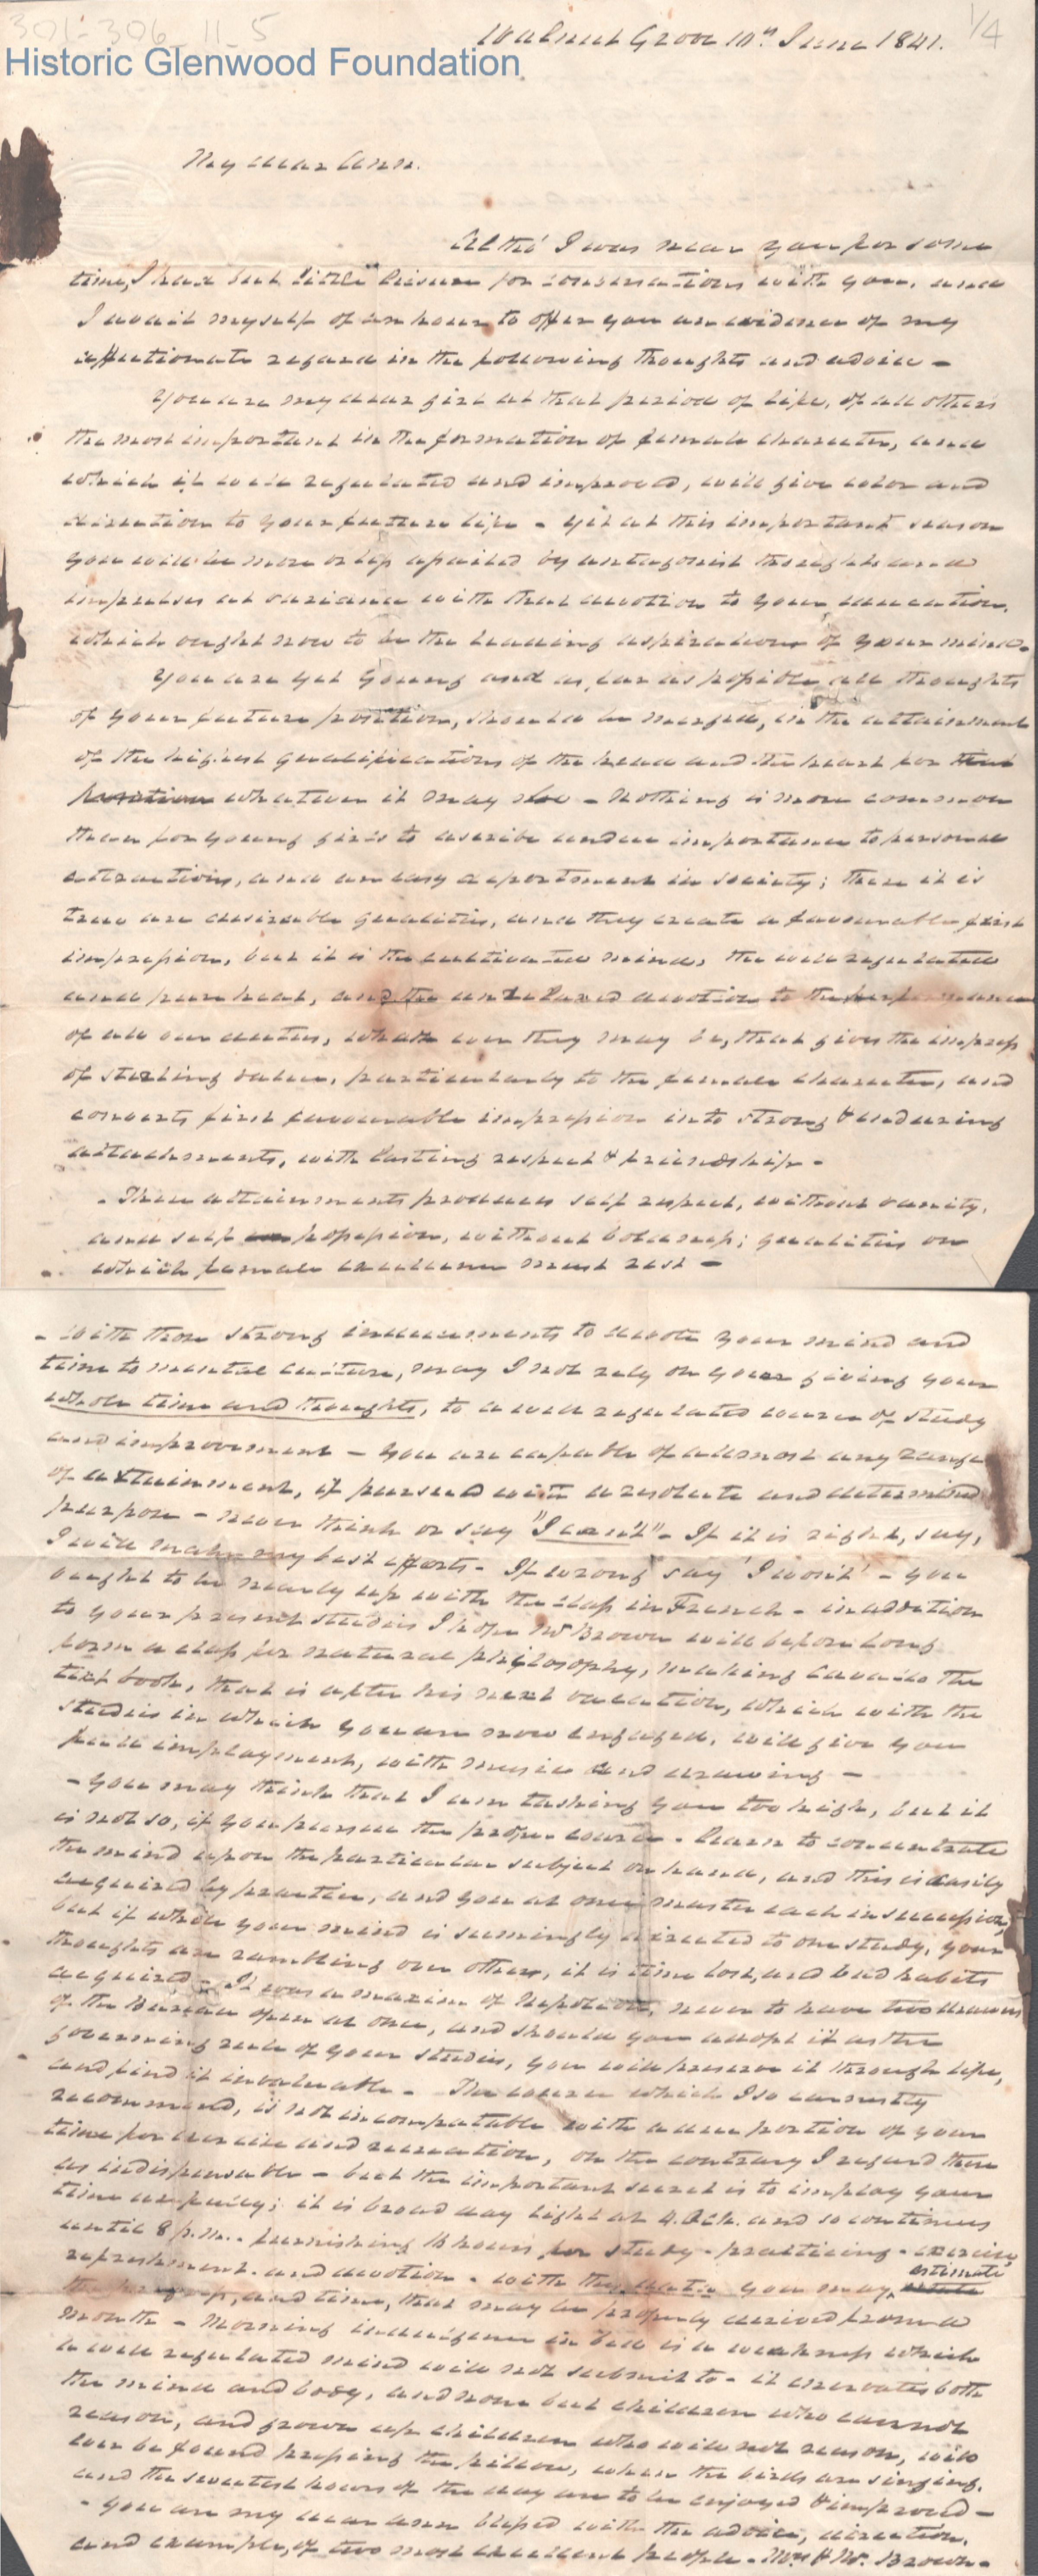 301-306_11_5
1/4
Historic Glenwood Foundation
Walnut Grove 10th June 1841.
My dear Ann.
Altho' I was near you for some
time, I had but little leisure for conversations with you, and
I avail myself of an hour to offer you an evidence of my
affectionate regard in the following thoughts and advice -
You are my dear girl at that period of life, of all others
the most important in the formation of female character, and
which if well regulated and improved, will give color and
direction to your future life - yet at this important season
you will be more or less assailed by antagonist thoughts and
impulses at variance with that devotion to your education,
which ought now to be the leading aspiration of your mind -
You are yet young and as far as possible all thoughts
of your future position, should be merged, in the attainment
of the highest qualifications of the head and the heart for that
position whatever it may be - Nothing is more common
than for young girls to ascribe undue importance to personal
attractions, and an easy deportment in society; these it is
true are desirable qualities, and they create a favourable first
impression, but it is the cultivated mind, the well regulated
and pure heart, and the unrelaxed devotion to the performance
of all our duties, what ever they may be, that gives the impress
of sterling value, particularly to the female character, and
converts first favourable impression into strong & enduring
attachments, with lasting respect & friendship -
- These attainments produces self respect, without vanity,
and self possession, without boldness; qualities on
which female excellence must rest -
- With these strong inducements to devote your mind and
time to mental culture, may I not rely on your giving your
whole time and thoughts, to a well regulated course of study
and improvement - You are capable of allmost any range
of attainment, if pursued with a resolute and determined
purpose - never think or say "I can't" - If it is right, say,
I will make my best efforts - If wrong say 'I won't' - you
ought to be nearly up with the class in French - in addition
to your present studies I hope Mr Brown will before long
form a class for natural philosophy, making Cavallo the
text book, that is after his next vacation, which with the
studies in which you are now engaged, will give you
full imployment, with music and drawing -
- You may think that I am tasking you too high, but it
is not so, if you pursue the proper course - learn to concentrate
the mind upon the particular subject on hand, and this is easily
acquired by practice, and you at once master each in succession,
but if while your mind is seemingly directed to one study, your
thoughts are rambling over others, it is time lost, and bad habits
acquired - It was a maxim of Napoleon, never to have two drawers
of the Bureau open at once, and should you adopt it as the
governing rule of your studies, you will preserve it through life,
and find it invaluable - The course which I so earnestly
recommend, is not incompatable with a due portion of your
time for exercise and recreation, on the contrary I regard them
as indispensable - but the important secret is to imploy your
time usefully; it is broad day light at 4. Oclk. and so continues
until 8 p.m. - furnishing 16 hours for study - practicing - exercise,
refreshment. and devotion - with this data you may estimate
the progress, and time, that may be properly derived from a
month - Morning indulgence in bed is a weakness which
a well regulated mind will not submit to - it enervates both
the mind and body, and none but children who cannot
reason, and grown up children who will not reason, will
ever be found pressing the pillow, when the birds are singing,
and the sweetest hours of the day are to be enjoyed & improved -
- You are my dear Ann blessed with the advice, direction,
and example, of two most excellent people - Mrs & Mr. Brown -